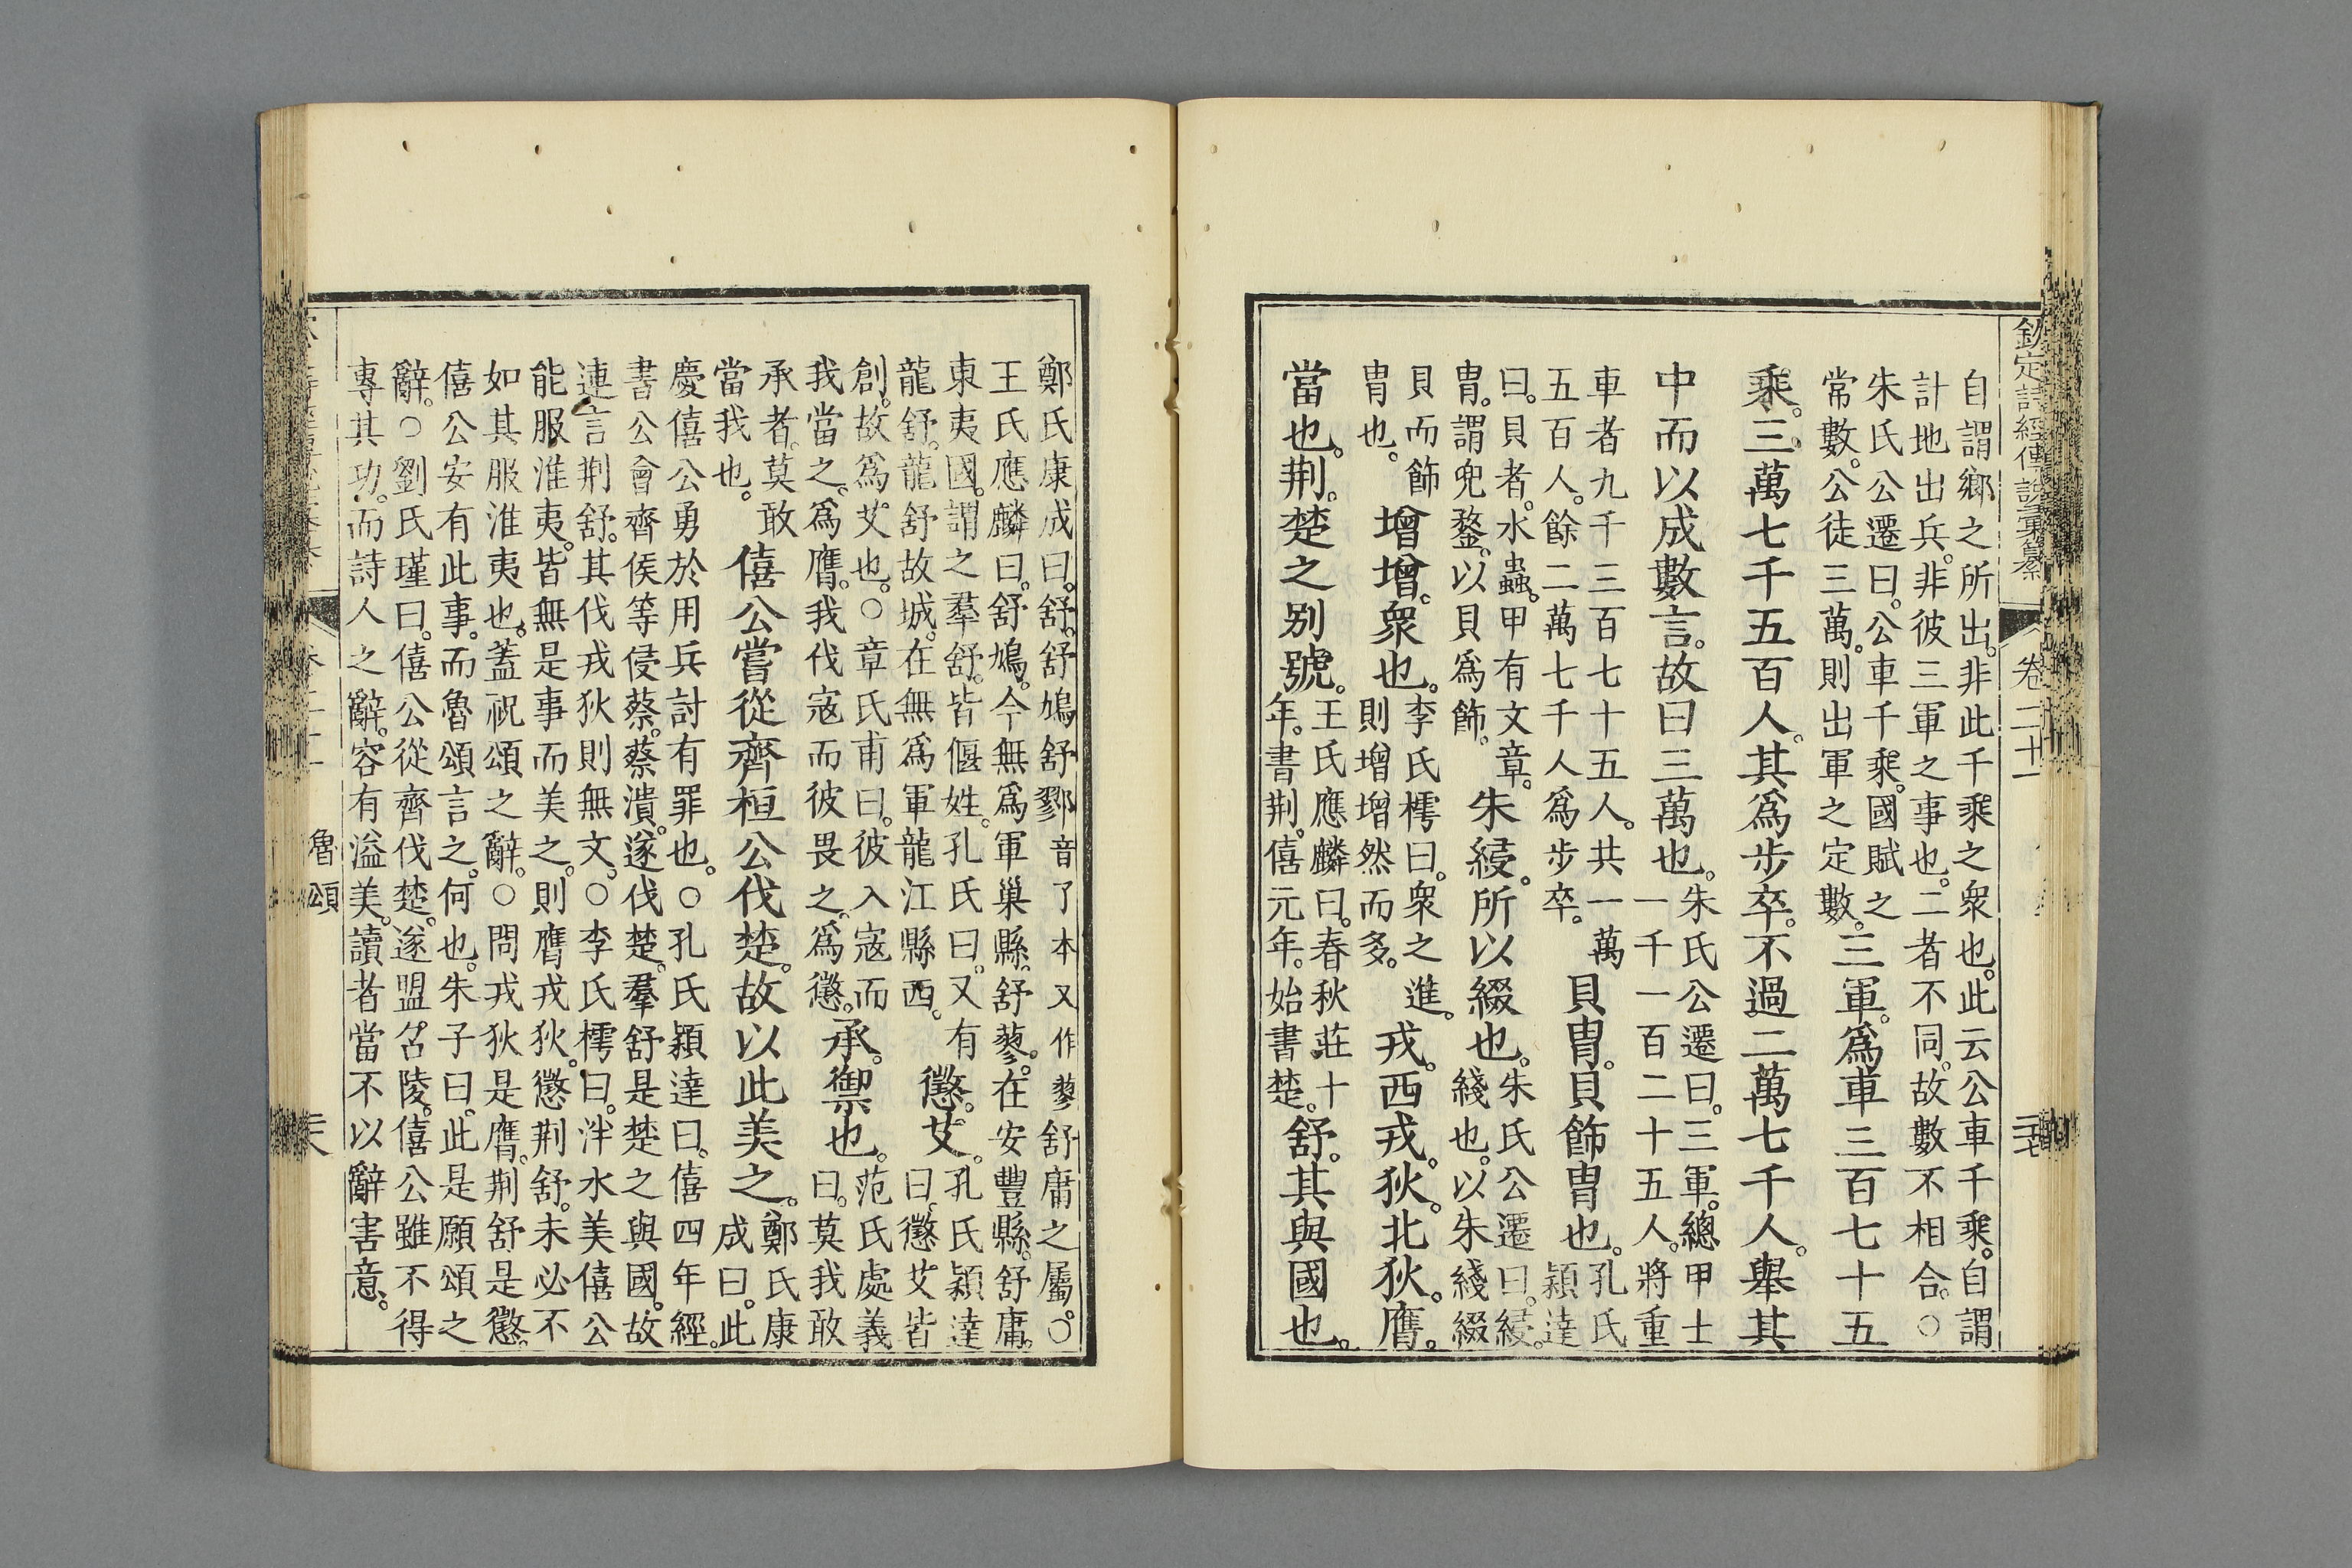 欽定詩經傳說彙纂 卷二十一
自謂鄉之所出。非此千乘之衆也。此云公車千乘。自謂
計地出兵。非彼三軍之事也。二者不同。故數不相合。○
朱氏公遷曰。公車千乘。國賦之
常數。公徒三萬。則出軍之定數。
三軍。爲車三百七十五
乘。三萬七千五百人。其爲步卒。不過二萬七千人。舉其
中而以成數言。故曰三萬也。
朱氏公遷曰。三軍。總甲士
一千一百二十五人。將重
車者九千三百七十五人。共一萬
五百人。餘二萬七千人爲步卒。
貝冑。貝飾冑也。
孔氏
穎達
曰。貝者。水蟲。甲有文章。
冑。謂兜鍪。以貝爲飾。
朱綅。所以綴也。
朱氏公遷曰。綅。
綫也。以朱綫綴
貝而飾
冑也。
增增。衆也。
李氏樗曰。衆之進。
則增增然而多。
戎。西戎。狄。北狄。膺。
當也。荆。楚之别號。
王氏應麟曰。春秋莊十
年。書荆。僖元年。始書楚。
舒。其與國也。
鄭氏康成曰。舒。舒鳩舒鄝音了本又作蓼舒庸之屬。○
王氏應麟曰。舒鳩。今無爲軍巢縣。舒蓼。在安豐縣。舒庸。
東夷國。謂之羣舒。皆偃姓。孔氏曰。又有
龍舒。龍舒故城。在無爲軍龍江縣西。
懲。艾。
孔氏穎達
曰。懲艾皆
創。故爲艾也。○章氏甫曰。彼入寇而
我當之。爲膺。我伐寇而彼畏之。爲懲。
承。禦也。
范氏處義
曰。莫我敢
承者。莫敢
當我也。
僖公嘗從齊桓公伐楚。故以此美之。
鄭氏康
成曰。此
慶僖公勇於用兵討有罪也。○孔氏穎達曰。僖四年經。
書公會齊侯等侵蔡。蔡潰。遂伐楚。羣舒是楚之與國。故
連言荆舒。其伐戎狄則無文。○李氏樗曰。泮水美僖公
能服淮夷。皆無是事而美之。則膺戎狄。懲荆舒。未必不
如其服淮夷也。蓋祝頌之辭。○問戎狄是膺。荆舒是懲。
僖公安有此事。而魯頌言之。何也。朱子曰。此是願頌之
辭。○劉氏瑾曰。僖公從齊伐楚。遂盟召陵。僖公雖不得
專其功。而詩人之辭。容有溢美。讀者當不以辭害意。
魯頌